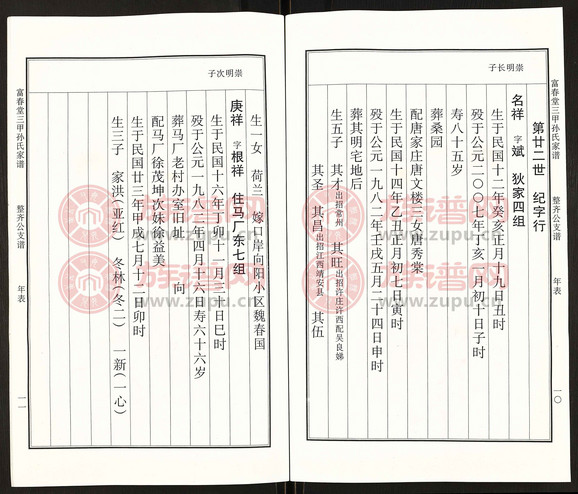 富春堂三甲孙氏家谱
整齐公支谱
年表
一〇
崇明长子
第廿二世 纪字行
名祥 字斌 狄家四组
生于民国十二年癸亥正月十九日丑时
殁于公元二〇〇七年丁亥 月初十日子时
寿八十五岁
葬桑园
配唐家庄唐文楼三女唐秀棠
生于民国十四年乙丑正月初七日寅时
殁于公元一九八二年壬戌五月二十四日申时
葬其明宅地后
生五子 其才出招常州 其旺出招许庄许西配吴良娣
其圣 其昌出招江西靖安县 其伍
崇明次子
生一女 荷兰 嫁口岸向阳小区魏春国
庚祥 字根祥 住马厂东七组
生于民国十六年丁卯十一月三十日巳时
殁于公元一九八二年四月十六日寿六十六岁
葬马厂老村办室旧址 向
配马厂徐茂坤次妹徐益美
生于民国廿三年甲戌七月十二日卯时
生三子 家洪(亚红) 冬林(冬二) 一新(一心)
富春堂三甲孙氏家谱
整齐公支谱
年表
一一
族谱网
www.zupu.cn
族谱网
www.zupu.cn